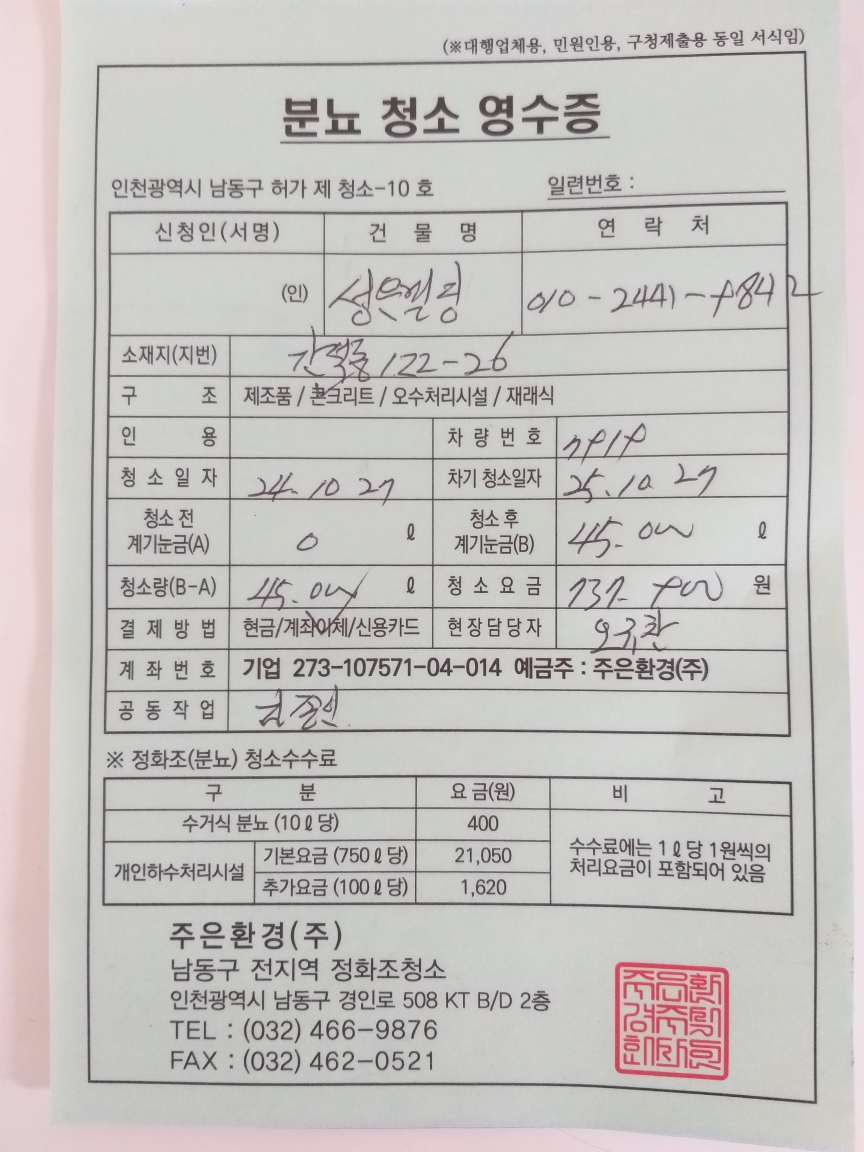 (※대행업체용, 민원인용, 구청제출용 동일 서식임)
분뇨 청소 영수증
인천광역시 남동구 허가 제 청소-10 호
일련번호 :
신청인(서명) 건 물 명 연 락 처
(인) 성은빌딩 010-2441-7842
소재지(지번) 간석동 122-26
구 조 제조품 / 콘크리트 / 오수처리시설 / 재래식
인 용 차 량 번 호
청 소 일 자 24. 10 27 차기 청소일자 25. 10. 27
청소 전 계기눈금(A) 0 ℓ 청소 후 계기눈금(B) 45.00 ℓ
청소량(B-A) 45.00 ℓ 청 소 요 금 원
결 제 방 법 현금/계좌이체/신용카드 현장담당자 오규환
계 좌 번 호 기업 273-107571-04-014 예금주 : 주은환경(주)
공 동 작 업
※ 정화조(분뇨) 청소수수료
구 분 요 금(원) 비 고
수거식 분뇨 (10ℓ당) 400
개인하수처리시설 기본요금 (750ℓ당) 21,050
추가요금 (100ℓ당) 1,620
수수료에는 1ℓ당 1원씩의
처리요금이 포함되어 있음
주은환경(주)
남동구 전지역 정화조청소
인천광역시 남동구 경인로 508 KT B/D 2층
TEL : (032) 466-9876
FAX : (032) 462-0521